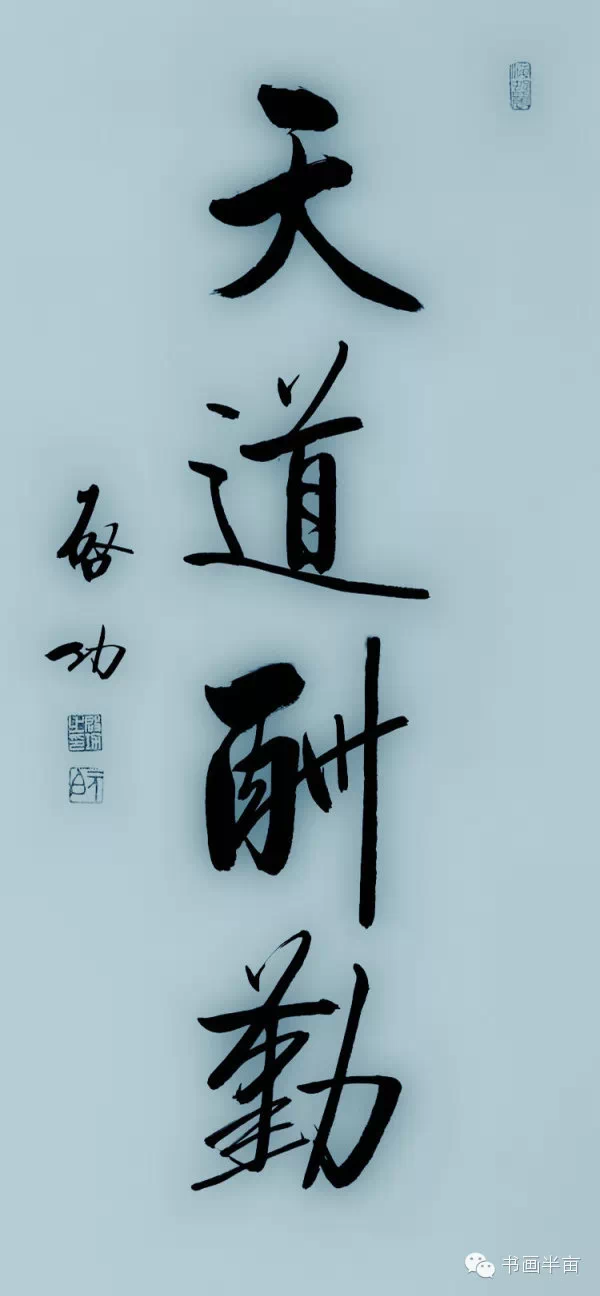 天道酬勤
啓功
书画半亩